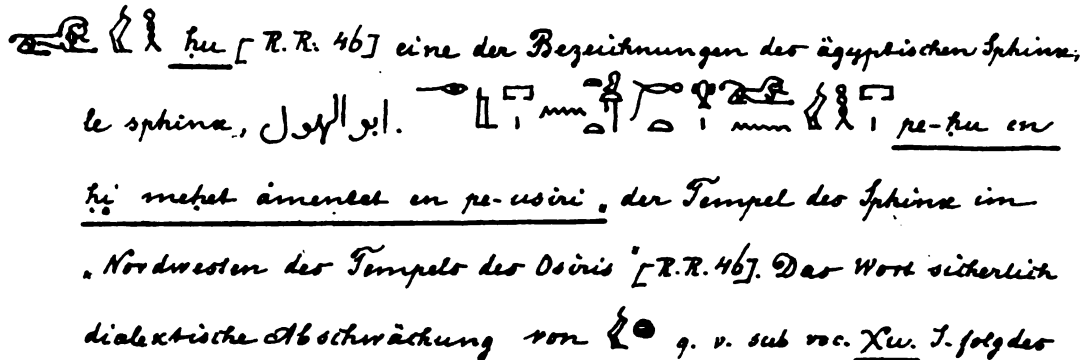 ḥu [R.R. 46] eine der Bezeichnungen des ägyptischen Sphinx,
le sphinx, ابو الهول. pe-ḥu en
ḥi meḥet åmentet en pe-usiri „der Tempel des Sphinx im
„Nordwesten des Tempels des Osiris" [R.R. 46]. Das Wort sicherlich
dialektische Abschwächung von q. v. sub voc. Xu. S. folgdes